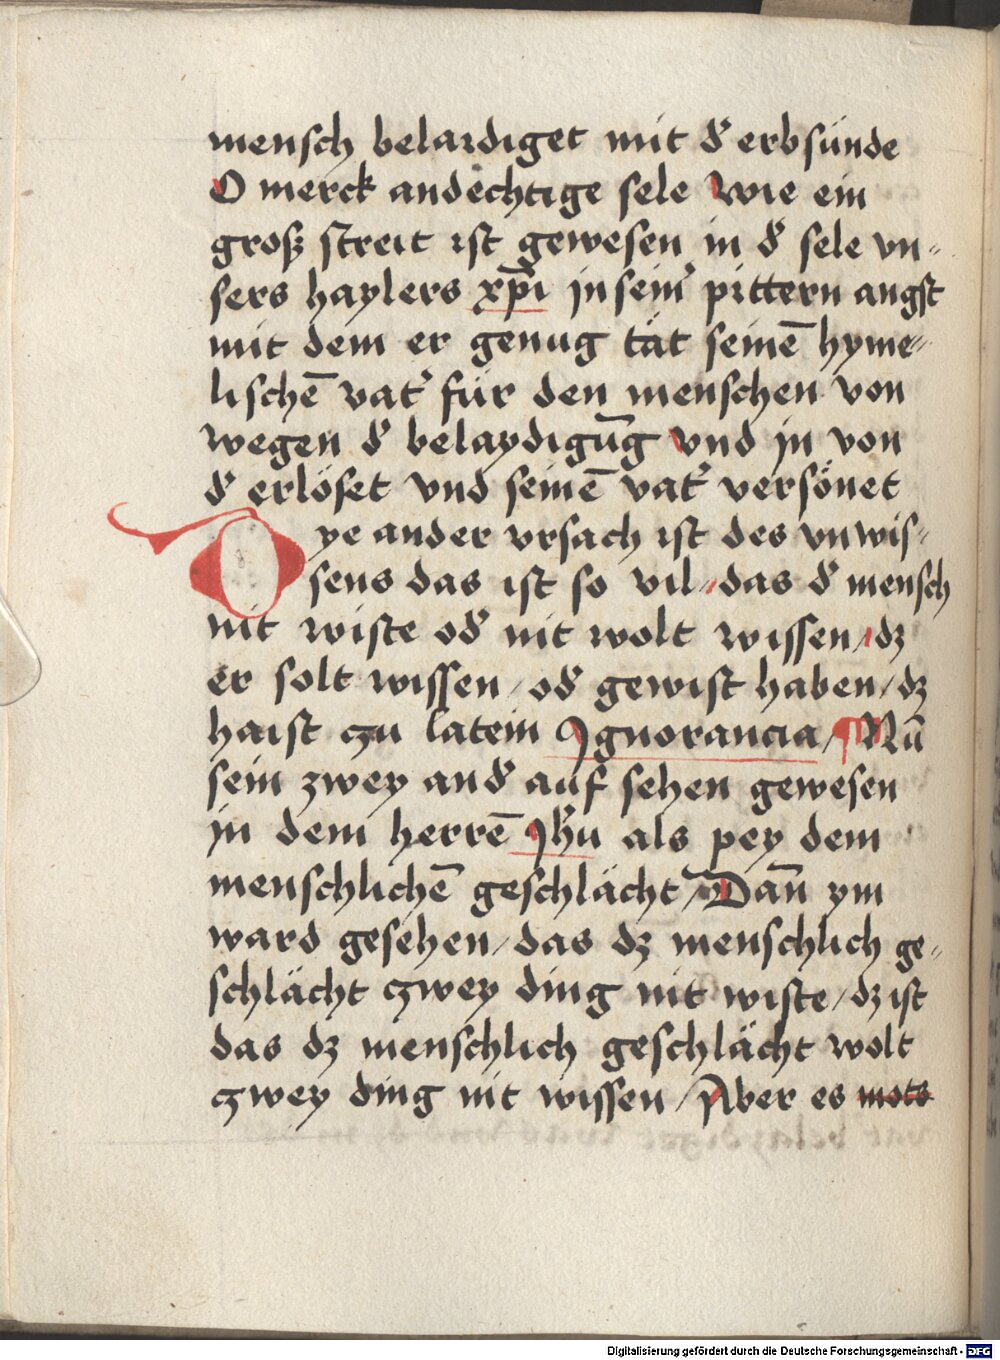 mensch belaidiget mit d̕ erbsünde
O merck andechtige sele Wie ein
groß streit ist gewesen in d̕ sele vn⸗
sers haylers xp̄i in sein̕ pittern angst
mit dem er genug tät seinē hyme⸗
lischē vat̕ für den menschen von
wegen d̕ belaydigūg vnd jn von
d̕ erlöset vnd seinē vat̕ versönet
Dye ander vrsach ist des vnwis⸗
sens das ist so vil / das d̕ mensch
nit wiste od̕ nit wolt wissen / dz
er solt wissen / od̕ gewist haben / dz
haist czu latein Ignorancia / ¶ Nū
sein zwey and̕ auf sehen gewesen
jn dem herrē Jhū als pey dem
menschlichē geschlächt / Dan̄ ym
ward gesehen / das dz menschlich ge⸗
schlächt czwey ding nit wiste / dz ist
das dz menschlich geschlächt wolt
czwey ding nit wissen / Aber es
Digitalisierung gefördert durch die Deutsche Forschungsgemeinschaft - DFG